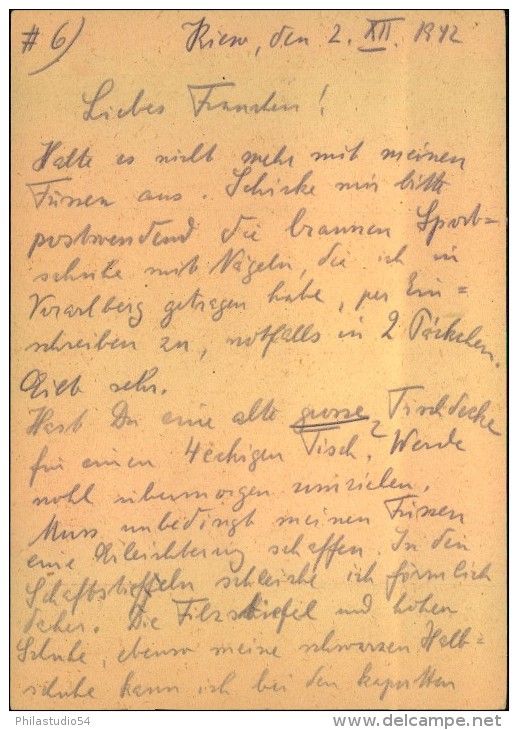 # 6)
Kiew, den 2. XII. 1942
Liebes Frauchen!
Halte es nicht mehr mit meinen
Füssen aus. Schicke mir bitte
postwendend die braunen Sport=
schuhe mit Nägeln, die ich in
Vorarlberg getragen habe, per Ein=
schreiben zu, notfalls in 2 Päckchen.
Eilt sehr.
Hast Du eine alte grosse Tischdecke
für einen 4eckigen Tisch? Werde
wohl übermorgen umziehen.
Muss unbedingt meinen Füssen
eine Erleichterung schaffen. In den
Schaftstiefeln schleiche ich förmlich
daher. Die Filzstiefel und hohen
Schuhe, ebenso meine schwarzen Halb=
schuhe kann ich bei den kaputten
Philastudio54